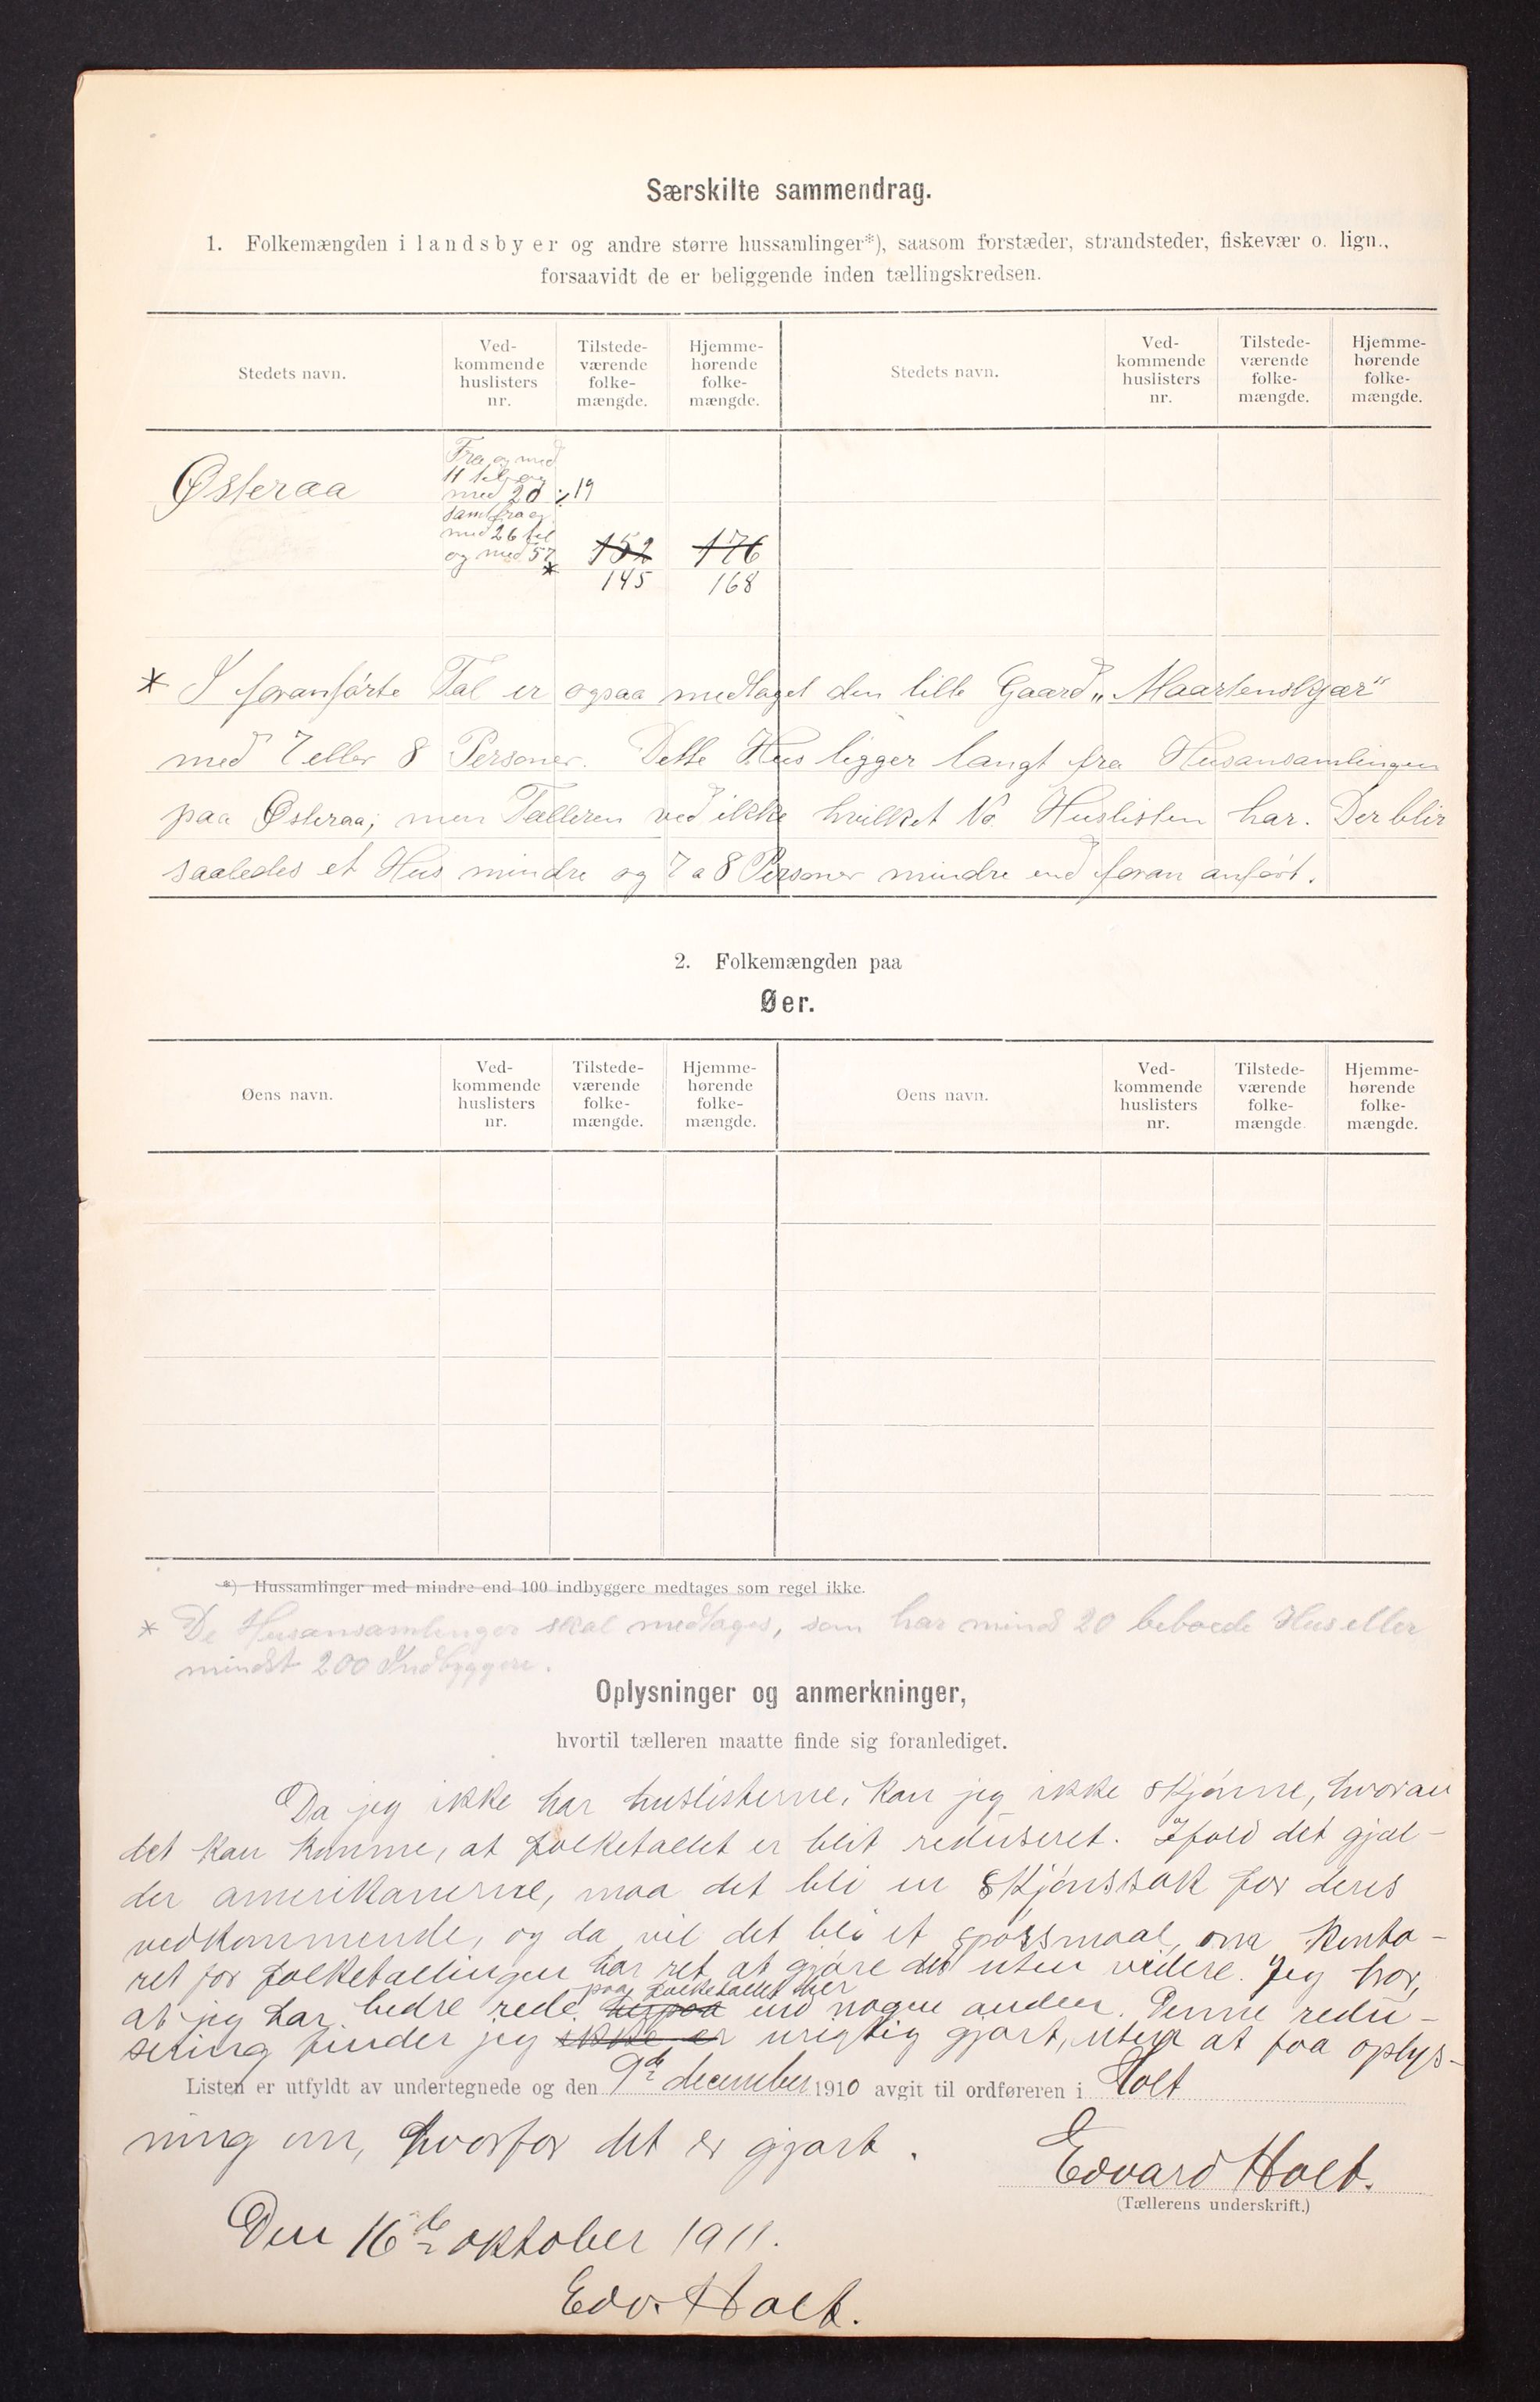 Særskilte sammendrag.
1. Folkemængden i landsbyer og andre større hussamlinger*), saasom forstæder, strandsteder, fiskevær o. lign.,
forsaavidt de er beliggende inden tællingskredsen.
Stedets navn.
Ved-
kommende
huslisters
nr.
Tilstede-
værende
folke-
mængde.
Hjemme-
hørende
folke-
mængde.
Stedets navn.
Ved-
kommende
huslisters
nr.
Tilstede-
værende
folke-
mængde.
Hjemme-
hørende
folke-
mængde.
Østeraa
Fra og med
11 til og
med 20 ÷ 19
samt fra og
med 26 til
og med 57
*
152 176
145 168
* I foranførte Tal er ogsaa medtaget den lille Gaard „Maartenskjær"
med 7 eller 8 Personer. Dette Hus ligger langt fra Husansamlingen
paa Østeraa; men Tælleren ved ikke hvilket No Huslisten har. Der blir
saaledes et Hus mindre og 7 a 8 Personer mindre end foran anført.
2. Folkemængden paa
Øer.
Øens navn.
Ved-
kommende
huslisters
nr.
Tilstede-
værende
folke-
mængde.
Hjemme-
hørende
folke-
mængde.
Øens navn.
Ved-
kommende
huslisters
nr.
Tilstede-
værende
folke-
mængde
Hjemme-
hørende
folke-
mængde.
*) Hussamlinger med mindre end 100 indbyggere medtages som regel ikke.
* De Husansamlinger skal medtages, som har minds 20 beboede Hus eller
mindst 200 Indbyggere.
Oplysninger og anmerkninger,
hvortil tælleren maatte finde sig foranlediget.
Da jeg ikke har huslisterne, kan jeg ikke skjønne, hvoran
det kan komme, at folketallet er blit reduseret. Ifald det gjæl-
der amerikanerne, maa det bli en skjønssak for deres
vedkommende, og da vil det bli et spørsmaal, om konto-
ret for folketællingen har ret at gjøre det uten videre. Jeg tror,
paa folketallet her
at jeg har bedre rede end nogen anden. Denne redu-
sering finder jeg ikke er urigtig gjort, uten at faa oplys-
Listen er utfyldt av undertegnede og den 9de december 1910 avgit til ordføreren i Holt
ning om, hvorfor det er gjort.
Edvard Holt.
(Tællerens underskrift.)
Den 16de oktober 1911.
Edv. Holt.